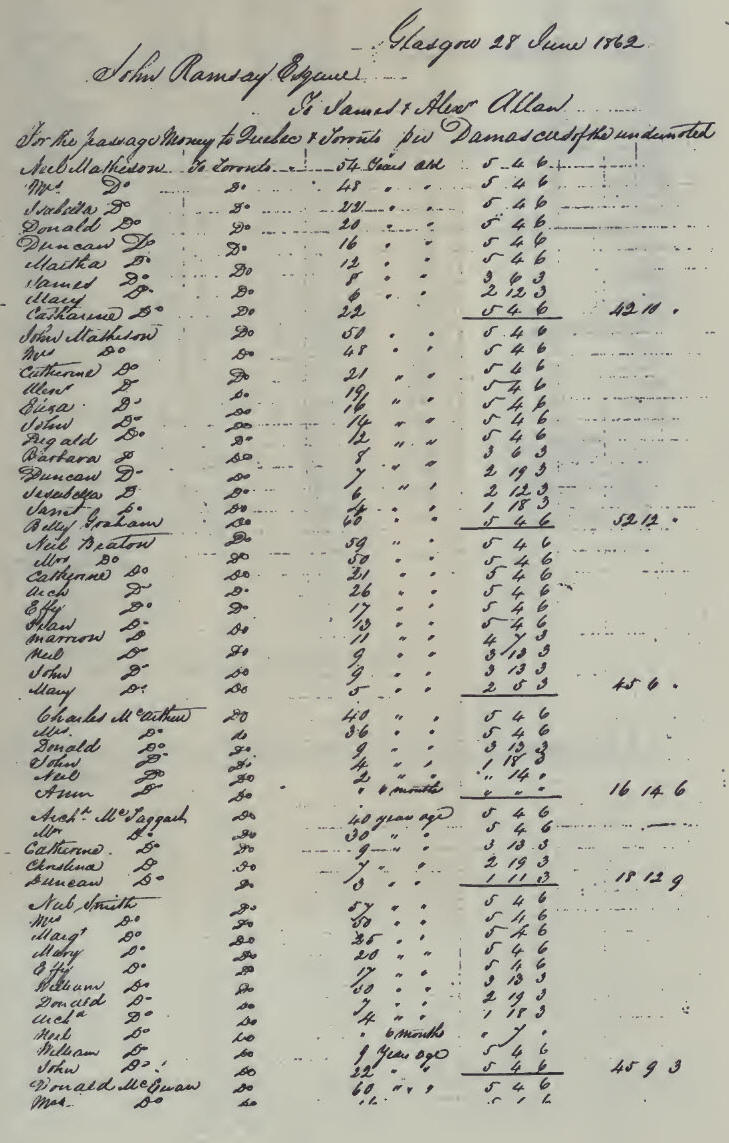 Glasgow 28 June 1862
John Ramsay Esquire
To James & Alexr Allan
For the passage Money to Quebec & Toronto per Damascus of the undernoted
Neil Matheson To Toronto 54 Years old 5 4 6
Mrs Do Do 48 " " 5 4 6
Isabella Do Do 22 " " 5 4 6
Donald Do Do 20 " " 5 4 6
Duncan Do Do 16 " " 5 4 6
Martha Do Do 12 " " 5 4 6
James Do Do 8 " " 3 6 3
Mary Do Do 6 " " 2 12 3
Catharine Do Do 22 5 4 6 42 10 "
John Matheson Do 50 " " 5 4 6
Mrs Do Do 48 " " 5 4 6
Catherine Do Do 21 " " 5 4 6
Alexr D Do 19 " " 5 4 6
Do Do 16 " " 5 4 6
John Do Do 14 " " 5 4 6
Do Do 12 " " 5 4 6
Barbara D Do 8 3 6 3
Duncan Do Do 7 " " 2 19 3
Isabella D Do 6 " " 2 12 3
Janet Do Do 4 " " 1 18 3
Betty Graham Do 60 " " 5 4 6 52 12 "
Neil Beaton Do 59 " " 5 4 6
Mrs Do Do 50 " " 5 4 6
Catherine Do Do 21 " " 5 4 6
Arch D Do 26 " " 5 4 6
Effy Do Do 17 " " 5 4 6
Do Do 13 " " 5 4 6
Marrion D Do 11 " " 4 7 3
Neil Do Do 9 " " 3 13 3
John Do Do 9 " " 3 13 3
Mary Do Do 5 " " 2 5 3 45 6 "
Charles McArthur Do 40 " " 5 4 6
Mrs. Do Do 36 " " 5 4 6
Donald Do Do 9 " " 3 13 3
John Do Do 4 " " 1 18 3
Neil Do Do 2 " " " 14 "
Ann Do Do " 6 months " " " 16 14 6
Archd McTaggart Do 40 years age 5 4 6
Mrs Do Do 30 " " 5 4 6
Catherine Do Do 9 " " 3 13 3
Christina D Do 7 " " 2 19 3
Duncan Do Do 3 " " 1 11 3 18 12 9
Neil Smith Do 57 " " 5 4 6
Mrs Do Do 50 " " 5 4 6
Margt Do Do 25 " " 5 4 6
Mary Do Do 20 " " 5 4 6
Effy Do Do 17 " " 5 4 6
William Do Do " " 3 13 3
Donald Do Do 7 " " 2 19 3
Archd Do Do 4 " " 1 18 3
Neil Do Do " 6 months " 7 "
William Do Do Years age 5 4 6
John Do Do 22 " " 5 4 6 45 9 3
Donald McEwan Do 60 " " " 5 4 6
Mrs Do Do